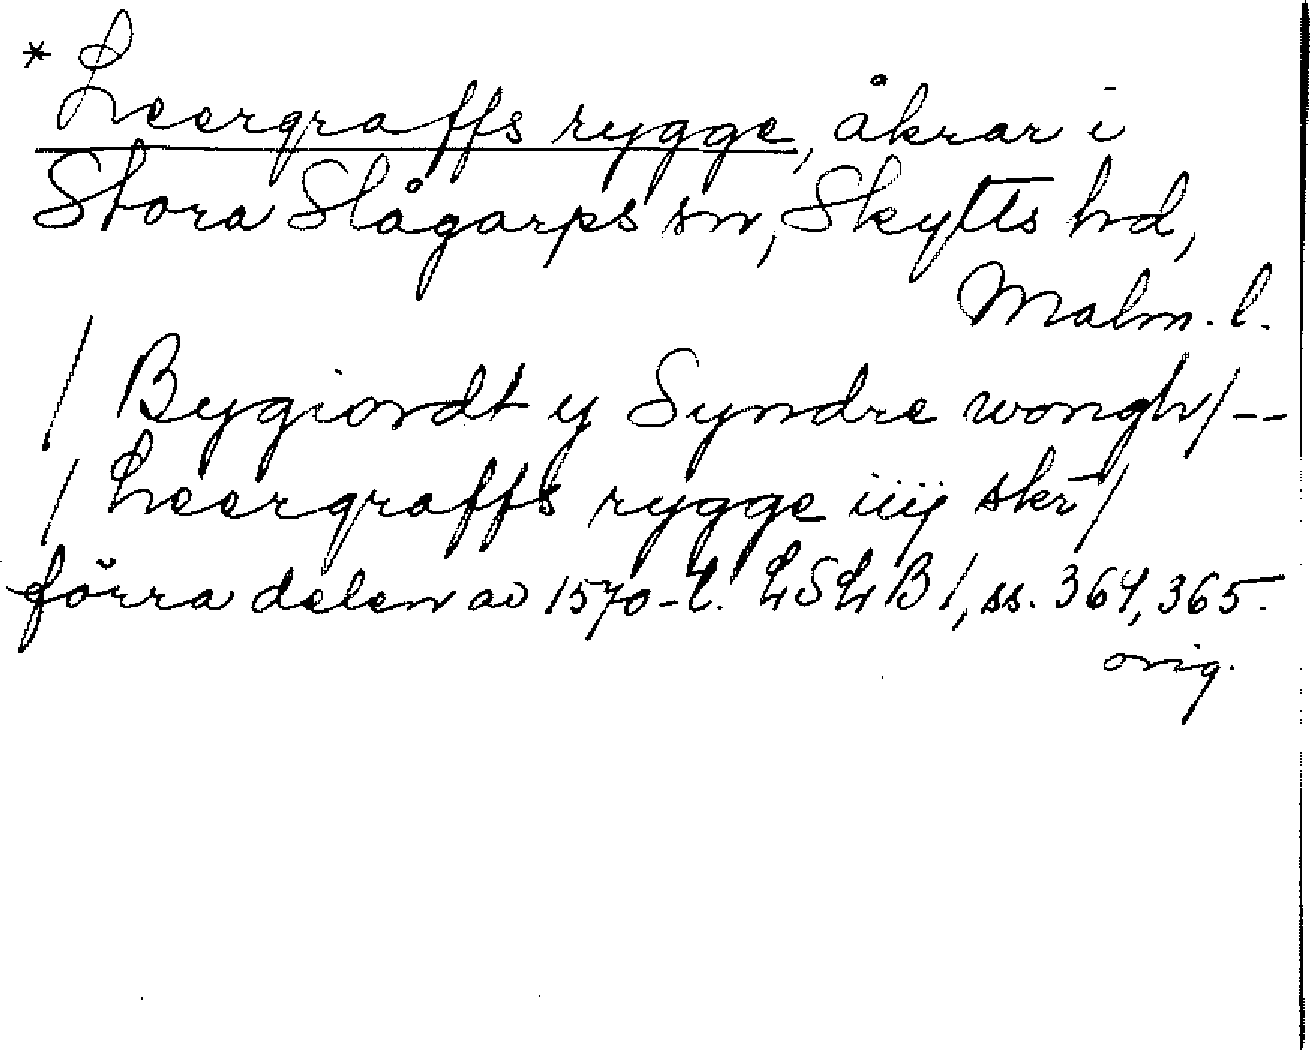 * Leergraffs rygge, åkrar i
Stora Slågarps sn, Skytts hd,
Malm. l.
/ Bygiordt y Syndre wongh/--
/ Leergraffs rygge iiij skr /
förra delen av 1570-t. LSLB 1, ss. 364, 365.
orig.